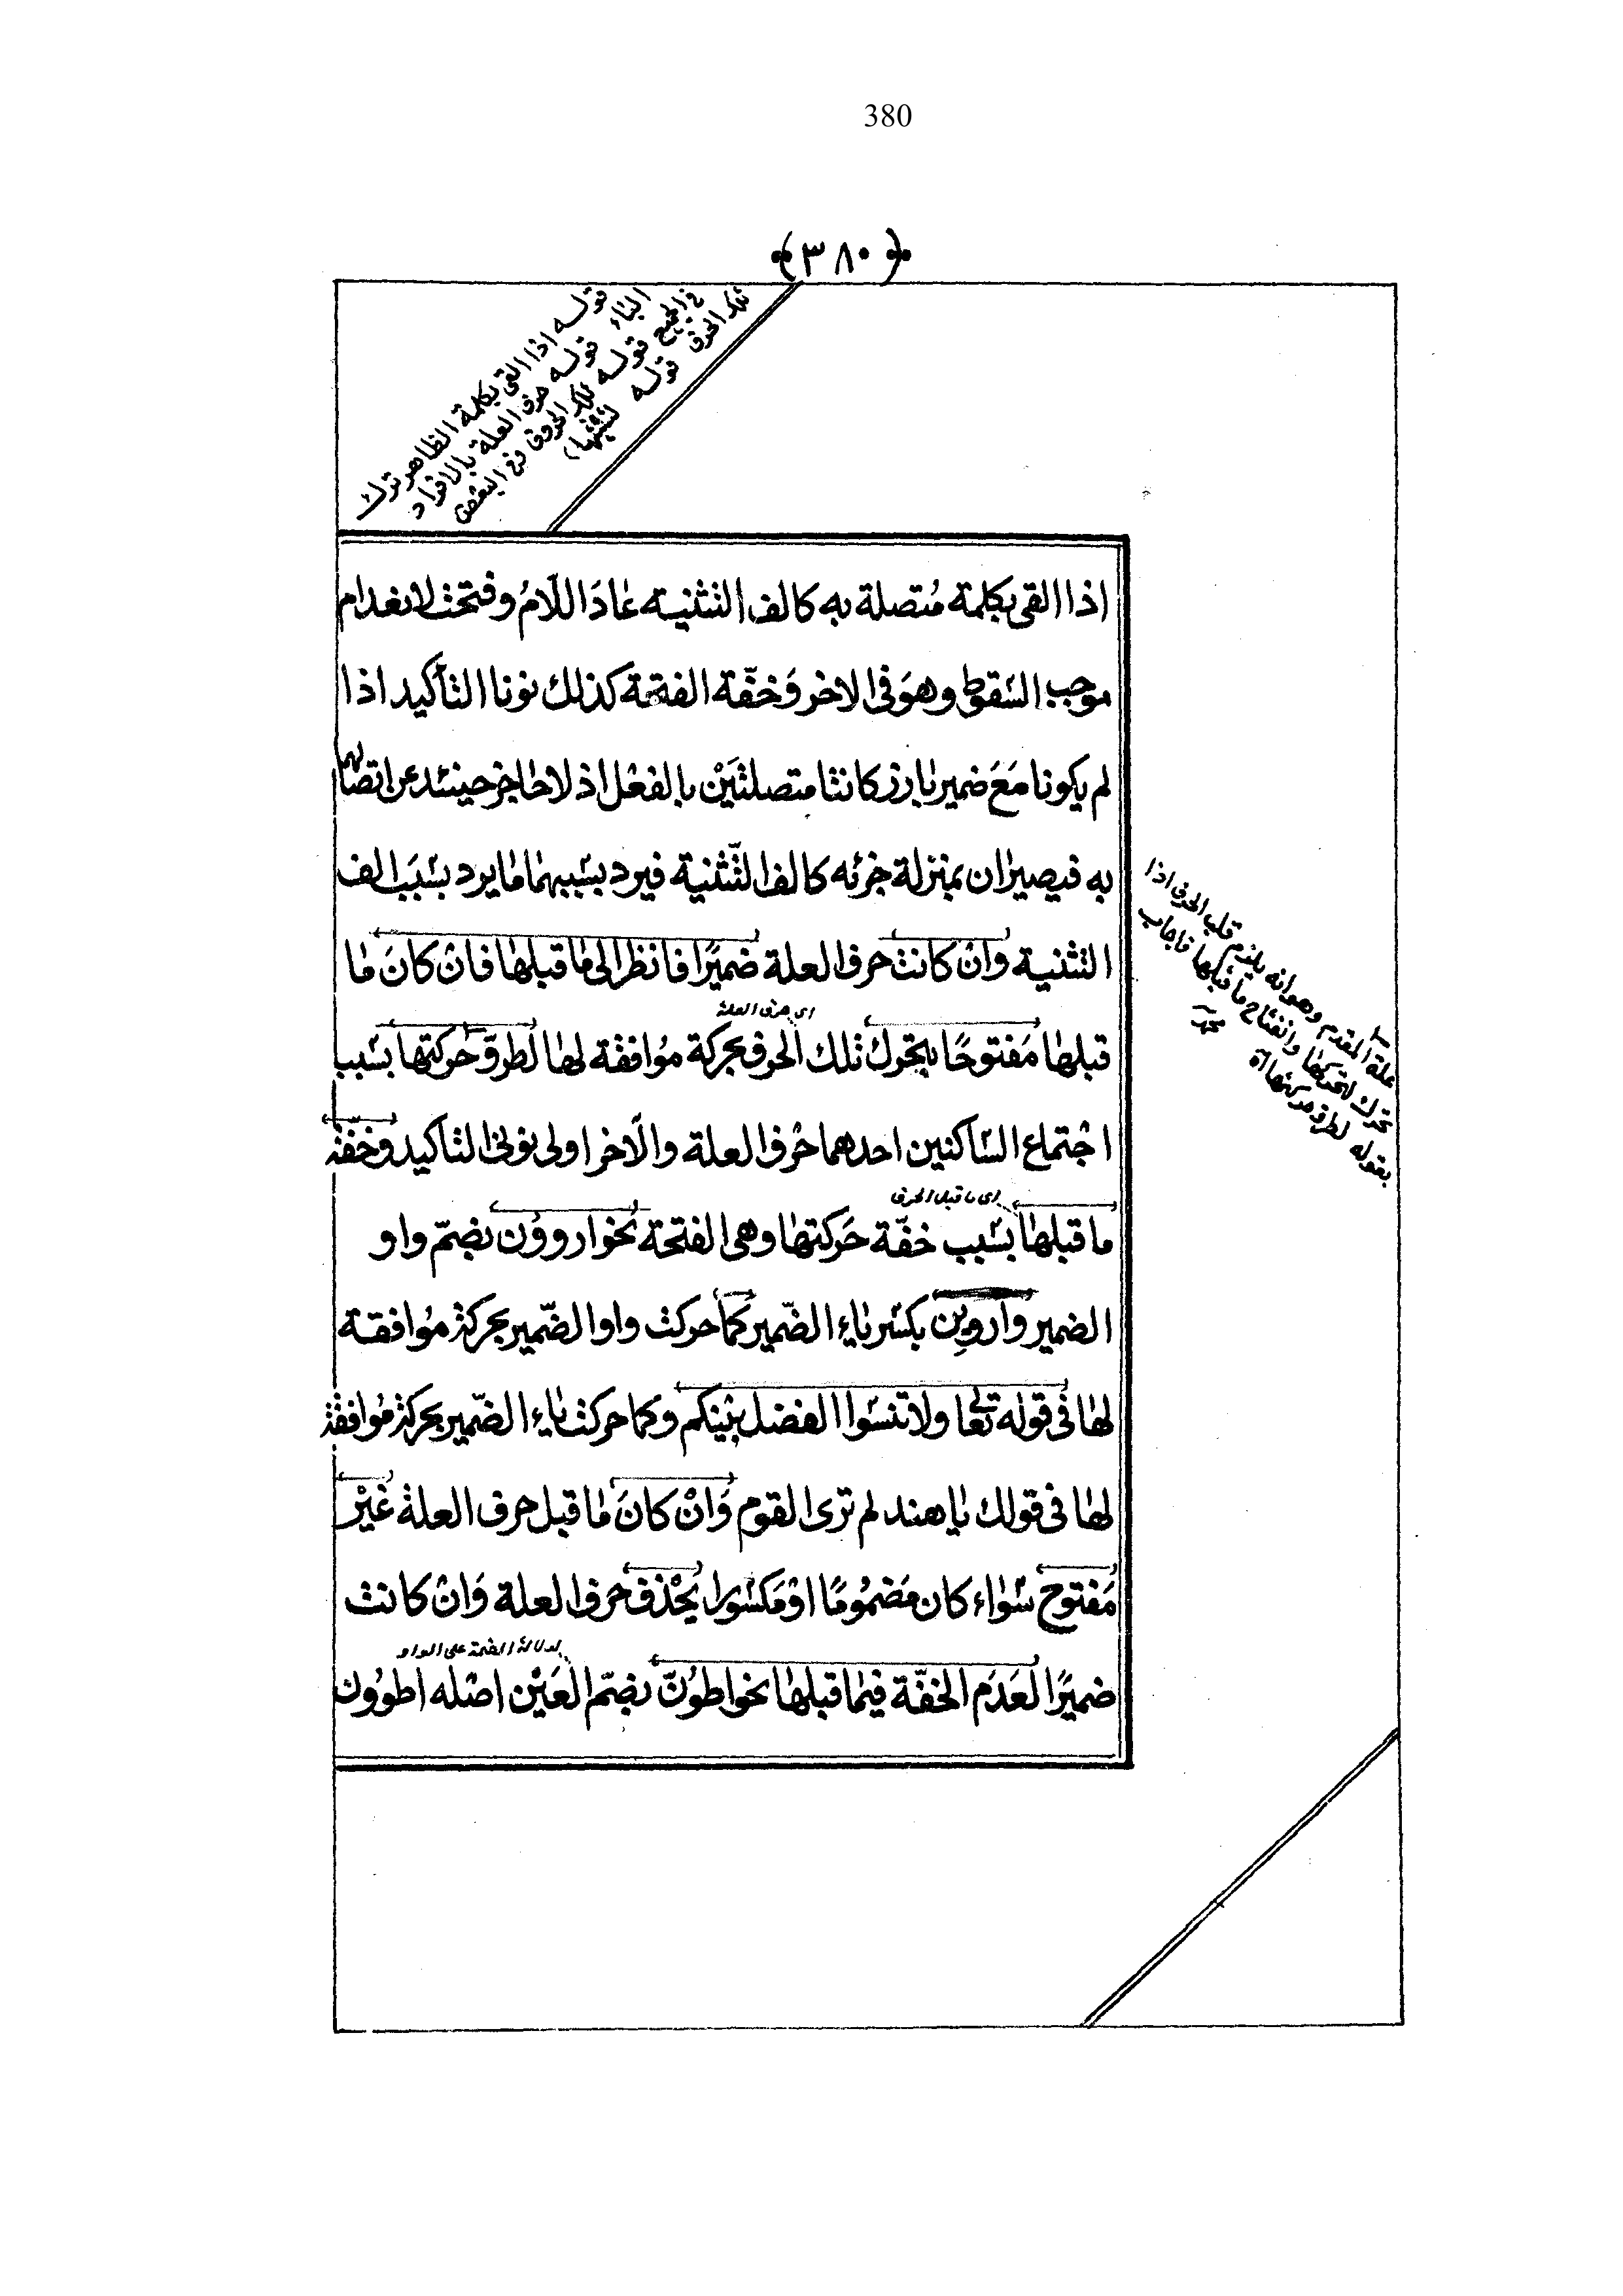 380
﴿٣٨٠﴾
قوله اذا القى بكلمة الظاهر ترك
البناء قوله حرف العلة بالافراد
في الجميع قوله تلك الحروف في البعض
تلك الحرف قوله
اذا القى بكلمة مُتصلة به كالف التثنية عادَ اللّامُ وفتحت لانعدام
موجب السّقوط وهوَ فى الاخر وَخفّة الفتحة كذلك نونا التأكيد اذا
لم يكونا مَعَ ضمير بارز كانتا متصلتَيْن بالفعْل اذ لاحاجز حينئذ عن اتصالهما
به فيصيران بمنزلة جزئه كالف التّثنية فيرد بسَببهما ما يرد بسَبَب الف
التثنية وَانْ كانت حرف العلة ضميرًا فانظر الى ما قبلها فانْ كانَ ما
اى حرف العلة
قبلها مَفتوحًا يتحرك تلك الحرف بحركة مُوافقة لها لطروّ حَركتها بسَبب
اجْتماع السّاكنين احدهما حرف العلة والآخر اولى نونى التأكيد وَخفّة
اى ما قبل الحرف
ما قبلها بسَبب خفّة حَركتها وهى الفتحة نحو اروؤن بضمّ واو
الضمير وَاروِين بكسْر ياء الضّمير كمَا حركت واو الضّمير بحركة مُوافقة
لها فى قوله تعالى ولا تنسَوا الفضل بينكم وكما حركت ياء الضّمير بحركة مُوافقة
لها فى قولك يا هند لم ترى القوم وَانْ كانَ ما قبل حرف العلة غيْر
مَفتوح سَواء كان مَضمُومًا اوْ مَكسُورا يُحْذف حرف العلة وَانْ كانت
لدلالة الضمة على الواو
ضميرًا لعَدَم الخفّة فيما قبلها نحو اطوُنّ بضمّ العَيْن اصْله اطوُوُن
علة المقدم وهو انه يلزم قلب الحرف اذا
تحرك لتحركها وانفتاح ما قبلها فاجاب
بقوله لطرو حركتها آه
محمد